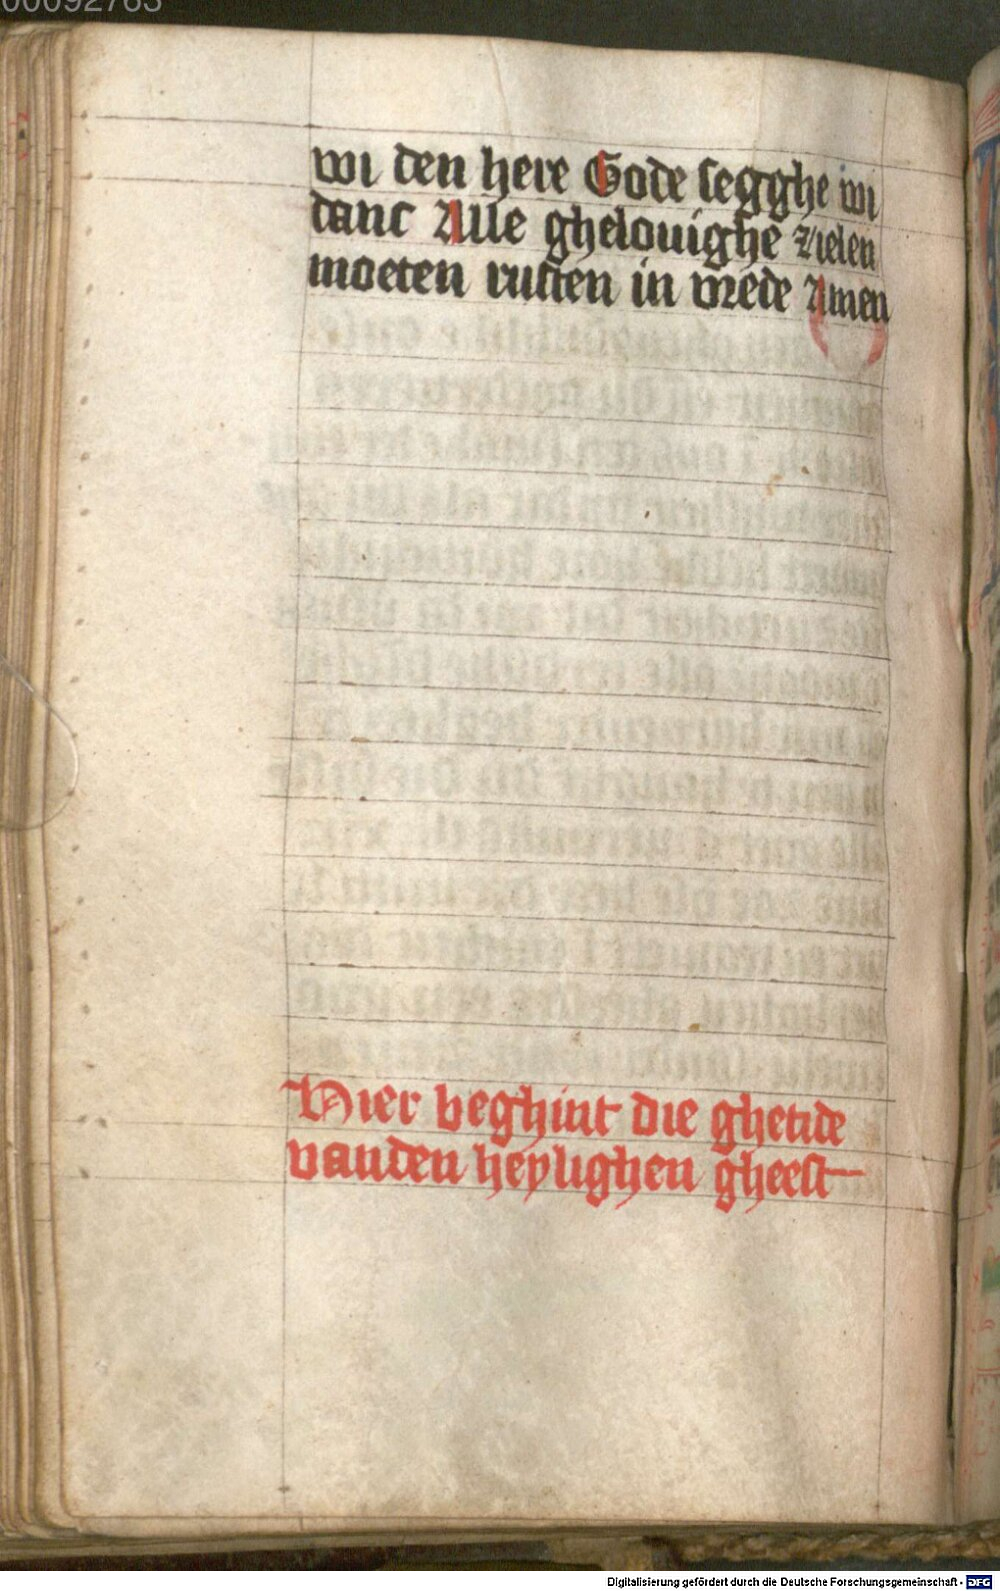 00092763
wi den here Gode segghe wi
danc Alle ghelouighe zielen
moeten rusten in vrede Amen
Hier beghint die ghetide
vanden heylighen gheest
Digitalisierung gefördert durch die Deutsche Forschungsgemeinschaft - DFG